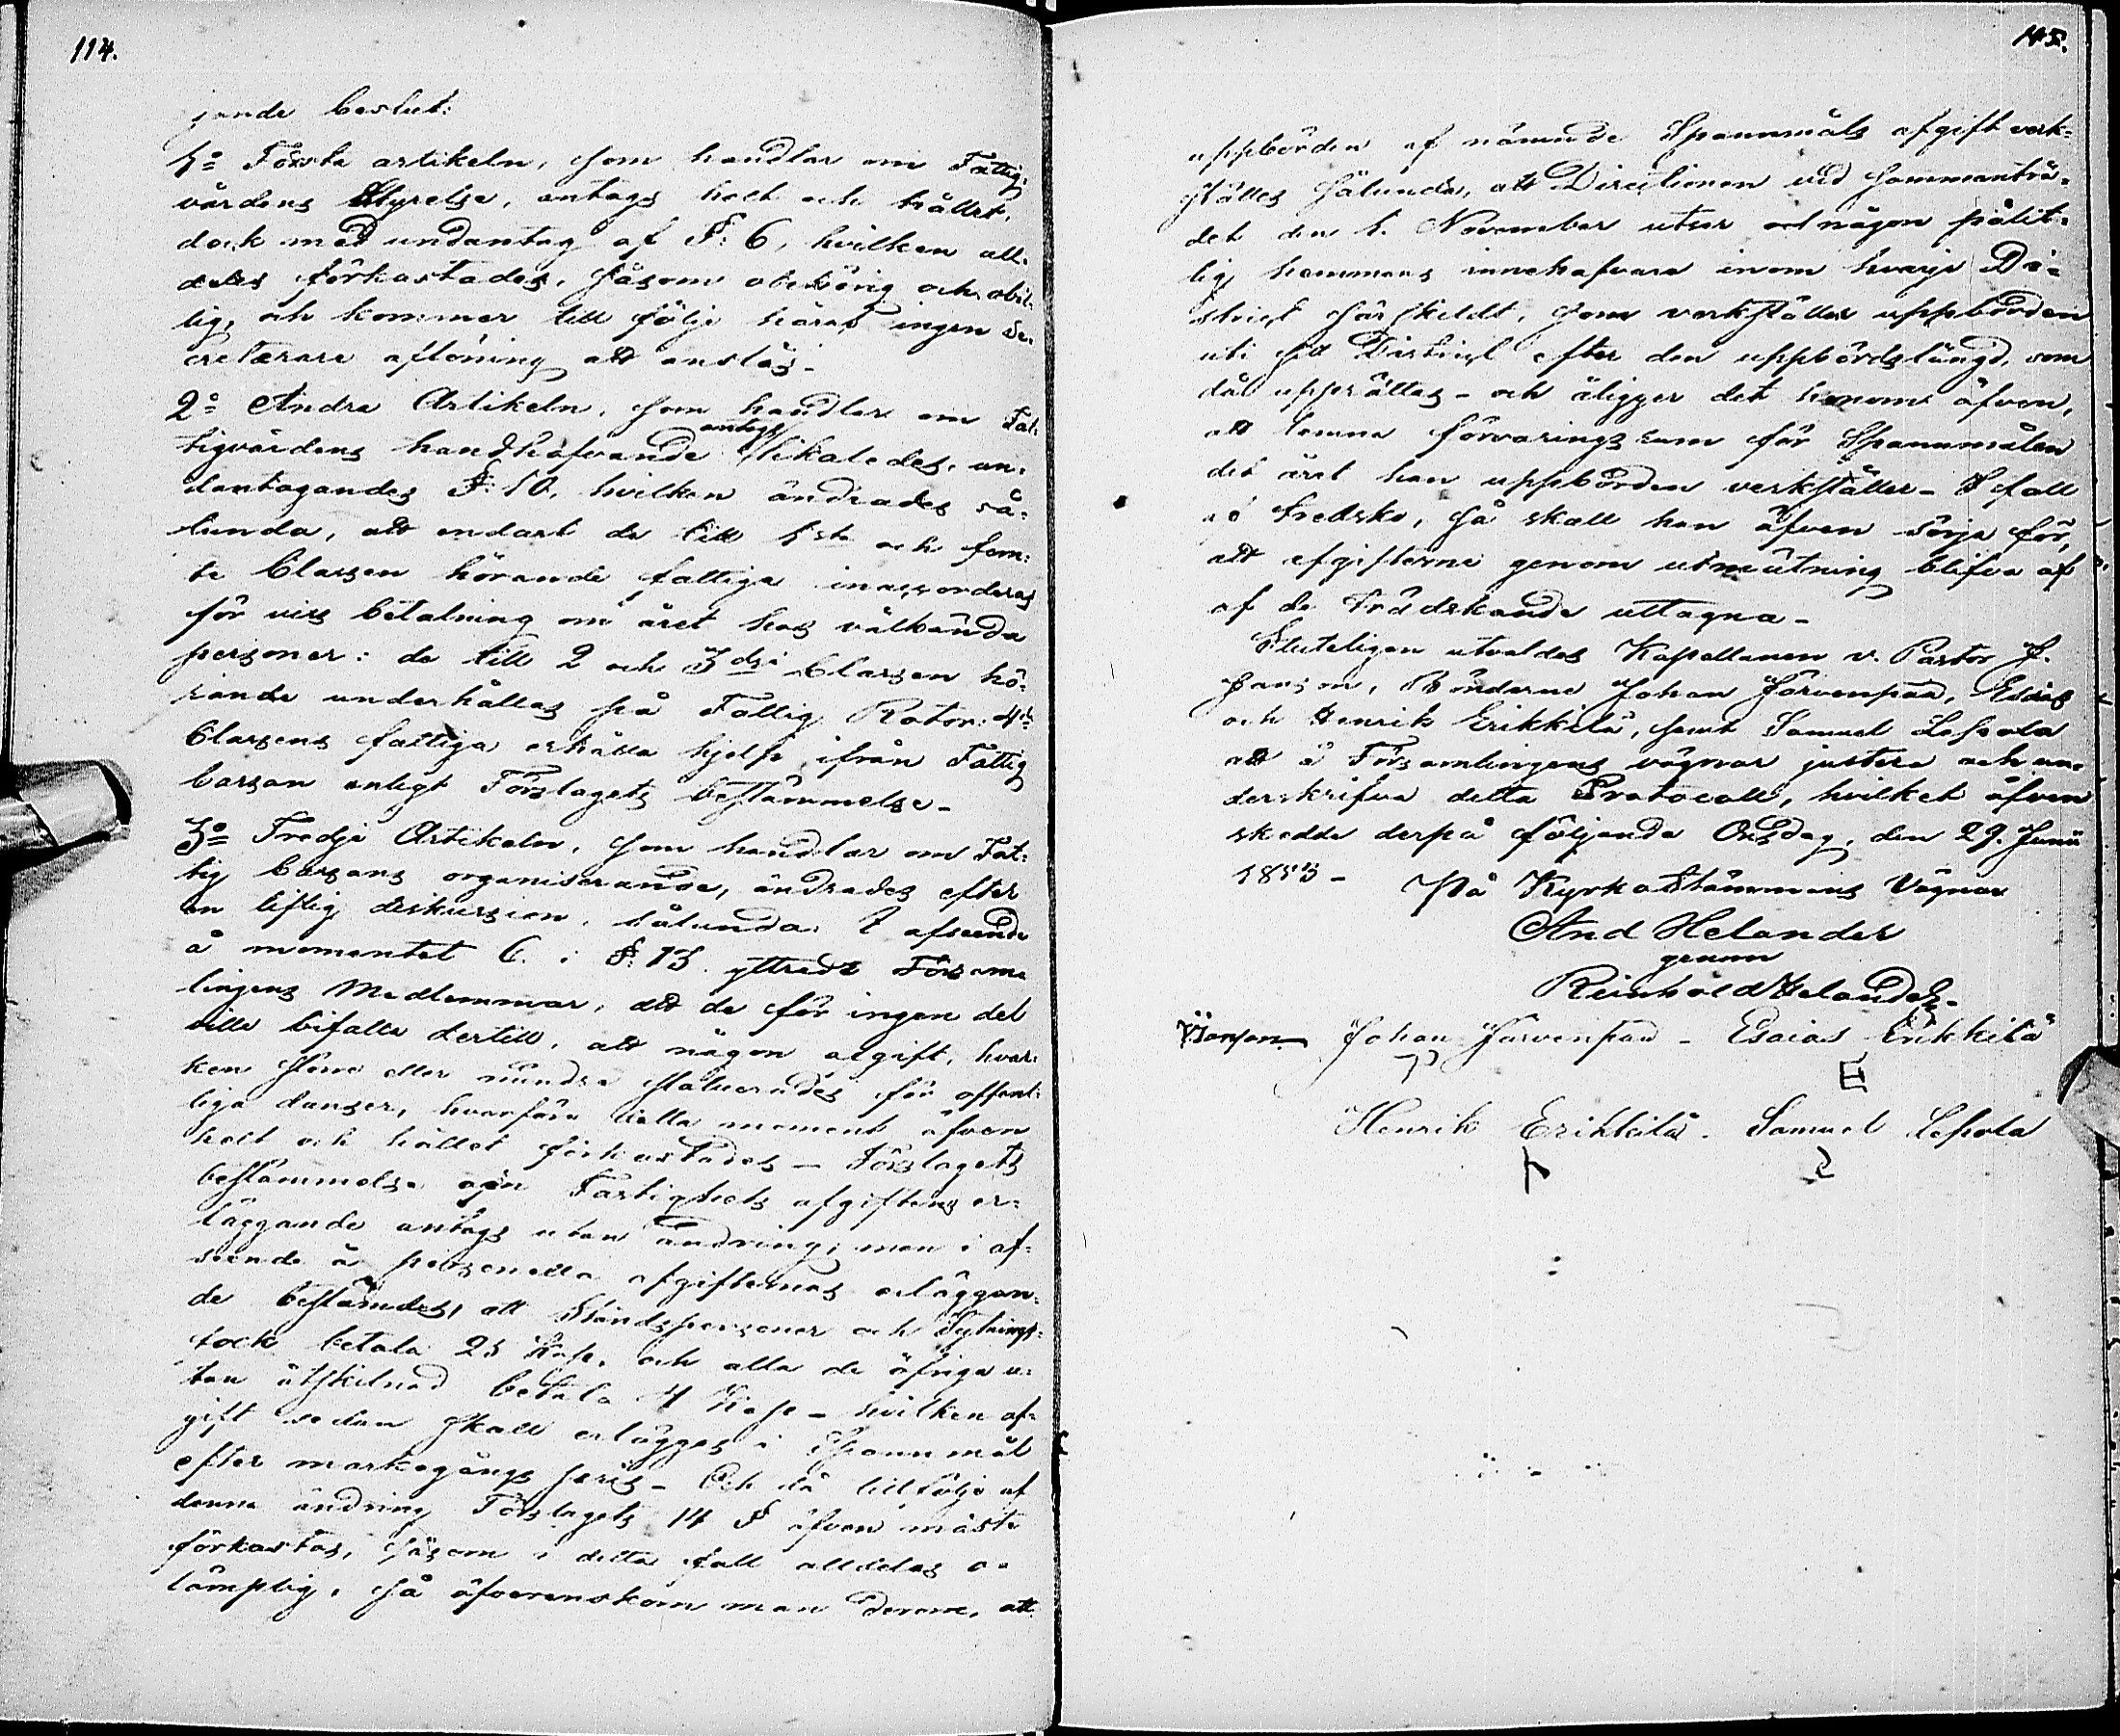 114.
jande beslut:
1º Första artikeln, som handlar om Fattig-
vårdens Styrelse, antogs helt och hållet,
dock med undantag af §: 6, hvilken all-
deles förkastades, såsom obehörig och obil-
lig, och kommer till följe häraf ingen Se-
creterare aflöning att anslås -
2º Andra Artikeln, som handlar om Fat-
tigvårdens handhafvande antogs likaledes, un-
dantagandes §: 10, hvilken ändrades så-
lunda, att endast de till 1sta och fem-
te Classen hörande fattiga inaccorderas
för viss betalning om året hos välkända
personer: de till 2 och 3dje Classen hö-
rande underhållas på Fattig Rotor: 4de
Classens fattiga erhålla hjelp ifrån Fattig
Cassan enligt Förslagets bestämmelse -
3º Tredje Artikeln, som handlar om Fat-
tig Cassans organiserande, ändrades efter
en liflig diskussion, sålunda: I afseende
å momentet C. i §: 13. yttrade Försam-
lingens Medlemmar, att de för ingen del
ville bifalla dertill, att någon afgift, hvar-
ken större eller mindre statuerades för offent-
liga danser, hvarföre detta moment äfven
helt och hållet förkastades - Förslagets
bestämmelse om Fastighets afgiftens er-
läggande antogs utan ändring; men i af-
seende å personella afgifternas erläggan-
de bestämdes, att Ståndspersoner och Sytnings-
folk betala 25 Kop. och alla de öfriga u-
tan åtskilnad betala 4 Kop - hvilken af-
gift sedan skall erlägges i Spannmål
efter markegångs pris - Och då till följe af
denna ändring Förslagets 14 § äfven måste
förkastas, såsom i detta fall alldeles o-
lämplig, så öfverenskom man derom, att
115.
uppbörden af nämnde Spannmåls afgift verk-
ställes sålunda, att Directionen vid sammanträ-
det den 1. November utser någon pålit-
lig hemmans innehafvare inom hvarje Di-
strict särskildt, som verkställer uppbörden
uti sitt District efter den uppbördslängd, som
då upprättas - och åligger det honom äfven,
att lemna förvaringsrum för Spannmålen
det året han uppbörden verkställer - I fall
af tredsko, så skall han äfven sörja för,
att afgifterne genom utmätning blifva af
af de Trädskande uttagna -
Sluteligen utvaldes Kapellanen v. Pastor J.
Janson, Bönderne Johan Järvenpää, Esaias
och Henrik Erikkilä, samt Samuel Lepola
att å Församlingens vägnar justera och un-
derskrifva detta Protocoll, hvilket äfven
skedde derpå följande Onsdag, den 29. Junii
1853 - På Kyrkostämmans Vägnar
And Helander
genom
Reinhold Helander -
J Janson Johan Järvenpää - Esaias Erikkilä
E
Henrik Erikkilä - Samuel Lepola